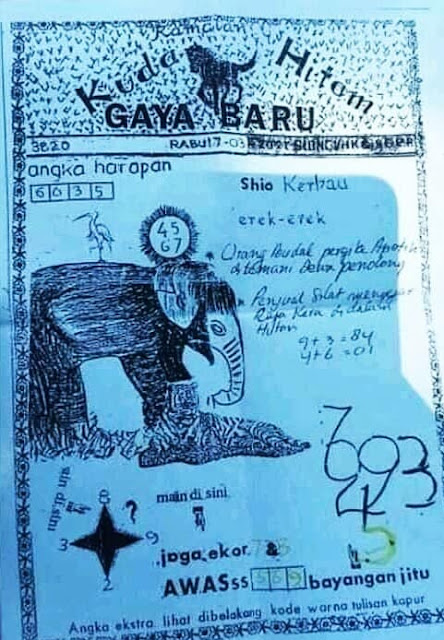 Ramalan
Kuda Hitam
GAYA BARU
3820
RABU 17-03
angka harapan
6 6 3 5
Shio Kerbau
erek-erek
45
67
ditemani Dewa penolong
Penjual Silat
Raja Kera di dalam
Hutan
9+3=84
4+6=01
7
693
4
main di sini
8
?
3
9
2
jaga.ekor. 7 &
5
AWASss 569 bayangan jitu
Angka ekstra. lihat dibelakang kode warna tulisan kapur